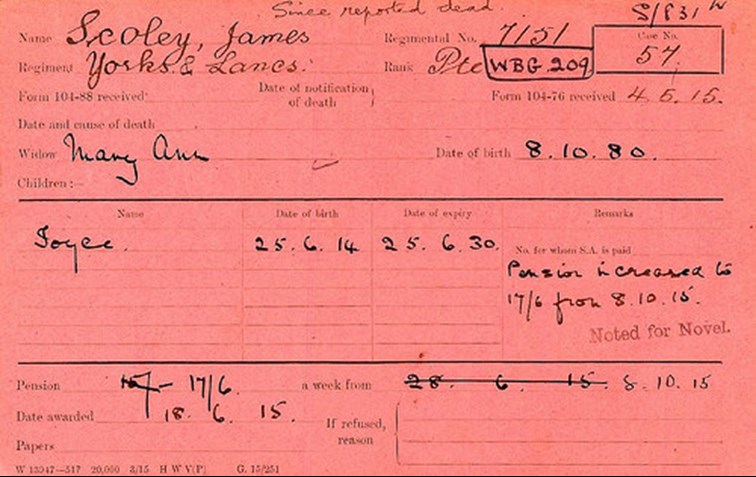 Since reported dead.
S/831 W
Name Scoley, James Regimental No. 7151 Case No. 57
Regiment Yorks & Lancs. Rank Pte WBG 209
Form 104-88 received Date of notification of death Form 104-76 received 4.5.15.
Date and cause of death
Widow Mary Ann Date of birth 8.10.80.
Children :—
Name Date of birth Date of expiry Remarks
Joyce. 25.6.14 25.6.30. No. for whom S.A. is paid
Pension increased to
17/6 from 8.10.15.
Noted for Novel.
Pension 15/- 17/6. a week from 28. 6 15. 8.10.15
Date awarded 18.6.15. If refused, reason
Papers
W 13947—517 20,000 3/15 H W V(P) G. 15/251